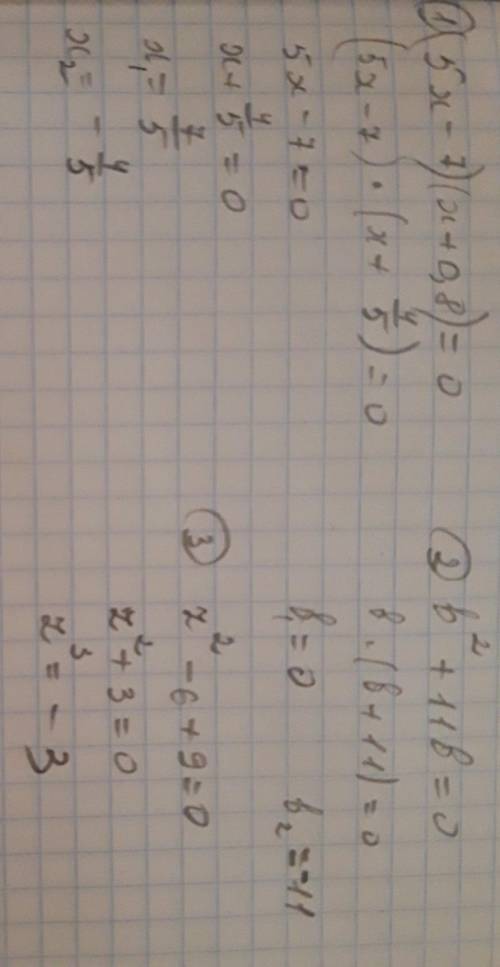 ① (5x - 7)(x + 0,8) = 0
(5x - 7) · (x + 4/5) = 0
5x - 7 = 0
x + 4/5 = 0
x₁ = 7/5
x₂ = - 4/5
② b² + 11b = 0
b · (b + 11) = 0
b₁ = 0 b₂ = -11
③ z² - 6 + 9 = 0
z² + 3 = 0
z³ = - 3